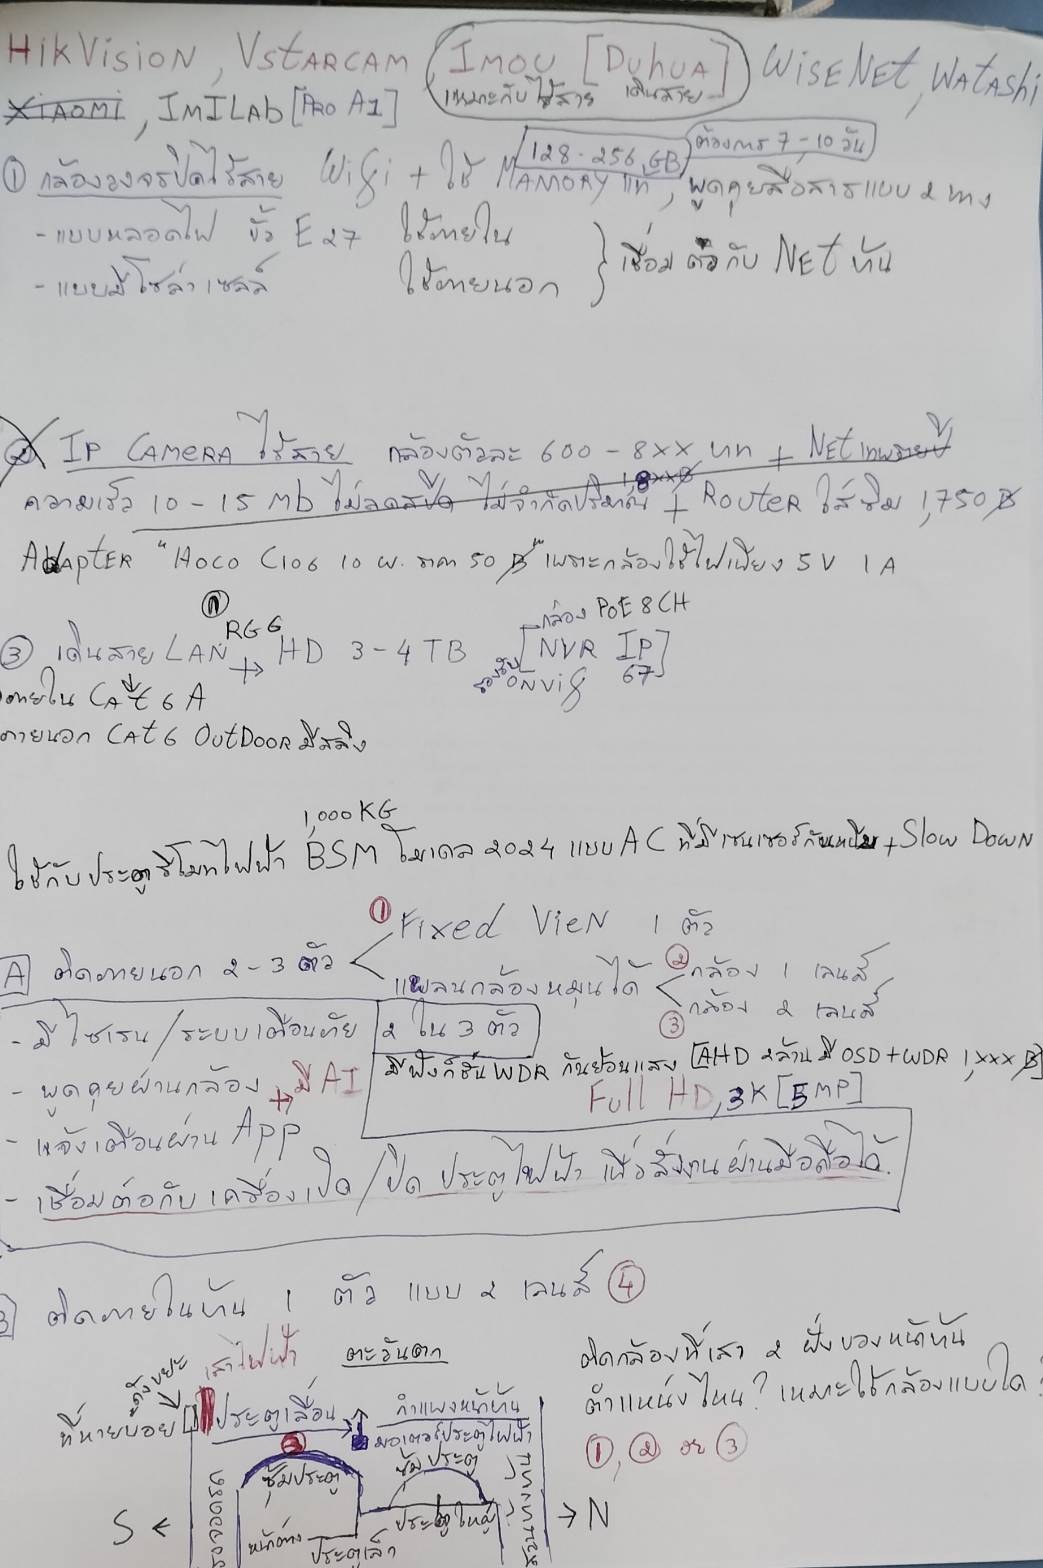 HIKVISION, VSTARCAM, IMOU [DUHUA] WISENET, WATASHI
เหมาะกับไร้สาย เดินสาย
XIAOMI, IMILAB [PRO A1]
128-256 GB ต้องการ 7-10 วัน
① กล้องวงจรปิดไร้สาย Wifi + ใช้ MAMORY แท้, พูดคุยสื่อสารแบบ 2 ทาง
- แบบหลอดไฟ ขั้ว E27 ใช้ภายใน
- แบบมีโซล่าเซลล์ ใช้ภายนอก
เชื่อมตัวกับ NET บ้าน
② IP CAMERA ไร้สาย กล้องตัวละ 600 - 8XX บาท + NET เทพรายปี
18XX฿
ความเร็ว 10-15 Mb ไม่ลดสปีด ไม่จำกัดปริมาณ + ROUTER ใส่ซิม 1,750฿
ADAPTER "HOCO C106 10 W. ราคา 50 ฿" เพราะกล้องใช้ไฟเพียง 5V 1A
กล่อง POE 8CH
RG6
③ เดินสาย LAN HD 3-4 TB [NVR IP]
ONVIF 67
ภายใน CAT 6 A
ภายนอก CAT 6 OUTDOOR มีสลิง
1,000 KG
ใช้กับประตูรีโมทไฟฟ้า BSM โมเดล 2024 แบบ AC ที่มีเซนเซอร์กันหนีบ + SLOW DOWN
① Fixed VIEW 1 ตัว
A ติดภายนอก 2-3 ตัว
แพลนกล้องหมุนได้
② กล้อง 1 เลนส์
③ กล้อง 2 เลนส์
- มีไซเรน/ระบบเตือนภัย 2 ใน 3 ตัว
มีฟังก์ชั่น WDR กันย้อนแสง [AHD 2ล้าน มี OSD + WDR 1,XXX ฿]
- พูดคุยผ่านกล้อง + มี AI
Full HD, 3K [5 MP]
- แจ้งเตือนผ่าน App
- เชื่อมต่อกับเครื่องเปิด/ปิด ประตูไฟฟ้า เพื่อสั่งงานผ่านมือถือได้.
B ติดภายในบ้าน 1 ตัว แบบ 2 เลนส์ ④
ติดกล้องที่เสา 2 ฝั่งของหน้าบ้าน
ตำแหน่งไหน? เหมาะใช้กล้องแบบใด?
①, ② หรือ ③
ถังขยะ เสาไฟฟ้า ตะวันตก
ที่หายบ่อย ประตูเลื่อน กำแพงหน้าบ้าน
มอเตอร์ประตูไฟฟ้า
ซุ้มประตู ซุ้มประตู
S ← → N
หน้าต่าง ประตูเล็ก ประตูใหญ่